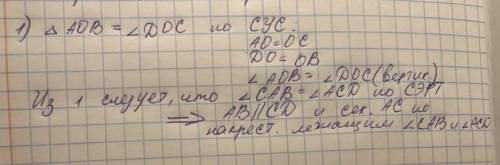 1) △ AOB = ∠DOC по СУС.
AO=OC
DO=OB
∠AOB=∠DOC(вертик.)
Из 1 следует, что ∠CAB=∠ACD по СЭРТ
⇒ AB||CD и сек. AC по
накрест. лежащим ∠CAB и ∠ACD